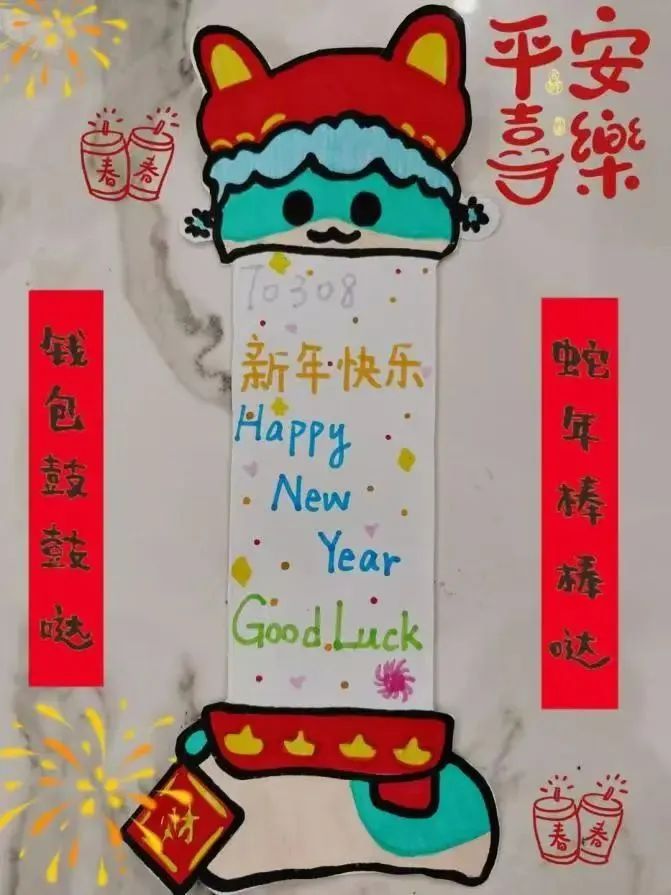 平安
喜樂
春 春
To 308
新年快乐
Happy
New
Year
Good Luck
钱包鼓鼓哒
蛇年棒棒哒
财
春 春